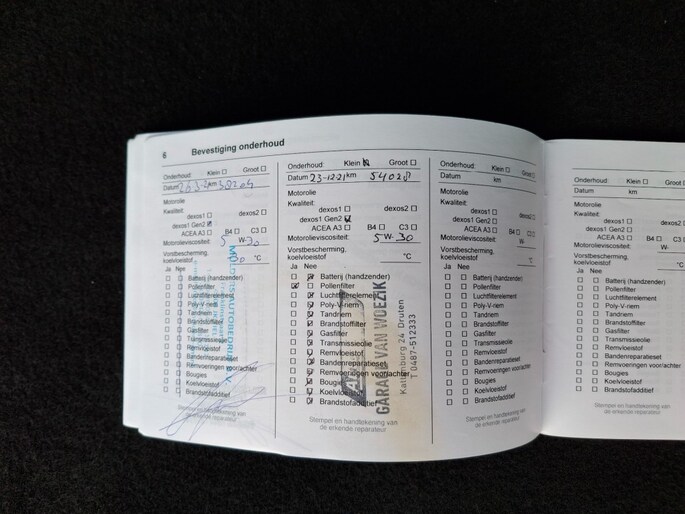 6 Bevestiging onderhoud
Onderhoud: Klein Groot
Datum km
Motorolie
Kwaliteit:
dexos1 dexos2
dexos1 Gen2
ACEA A3 B4 C3
Motorolieviscositeit: 5 W-30
Vorstbescherming,
koelvloeistof °C
Ja Nee
Batterij (handzender)
Pollenfilter
Luchtfilterelement
Poly-V-riem
Tandriem
Brandstoffilter
Gasfilter
Transmissieolie
Remvloeistof
Bandenreparatieset
Remvoeringen voor/achter
Bougies
Koelvloeistof
Brandstofadditief
Stempel en handtekening van
de erkende reparateur
Onderhoud: Klein Groot
Datum 23-12-21 km 54028
Motorolie
Kwaliteit:
dexos1 dexos2
dexos1 Gen2
ACEA A3 B4 C3
Motorolieviscositeit: 5 W-30
Vorstbescherming,
koelvloeistof °C
Ja Nee
Batterij (handzender)
Pollenfilter
Luchtfilterelement
Poly-V-riem
Tandriem
Brandstoffilter
Gasfilter
Transmissieolie
Remvloeistof
Bandenreparatieset
Remvoeringen voor/achter
Bougies
Koelvloeistof
Brandstofadditief
GARAGE VAN WOEZIK
Kattenburg 24 Druten
T 0487-512333
Stempel en handtekening van
de erkende reparateur
Onderhoud: Klein Groot
Datum km
Motorolie
Kwaliteit:
dexos1 dexos2
dexos1 Gen2
ACEA A3 B4 C3
Motorolieviscositeit: W-
Vorstbescherming,
koelvloeistof °C
Ja Nee
Batterij (handzender)
Pollenfilter
Luchtfilterelement
Poly-V-riem
Tandriem
Brandstoffilter
Gasfilter
Transmissieolie
Remvloeistof
Bandenreparatieset
Remvoeringen voor/achter
Bougies
Koelvloeistof
Brandstofadditief
Stempel en handtekening van
de erkende reparateur
Onderhoud: Klein
Datum km
Motorolie
Kwaliteit:
dexos1
dexos1 Gen2
ACEA A3
Motorolieviscositeit:
Vorstbescherming,
koelvloeistof
Ja Nee
Batterij (handzender)
Pollenfilter
Luchtfilterelement
Poly-V-riem
Tandriem
Brandstoffilter
Gasfilter
Transmissieolie
Remvloeistof
Bandenreparatieset
Remvoeringen voor/achter
Bougies
Koelvloeistof
Brandstofadditief